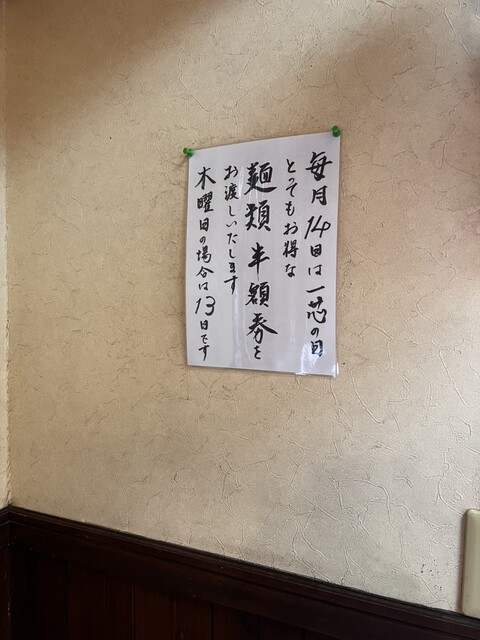 毎月14日は一芯の日
とってもお得な
麺類半額券を
お渡しいたします
木曜日の場合は13日です